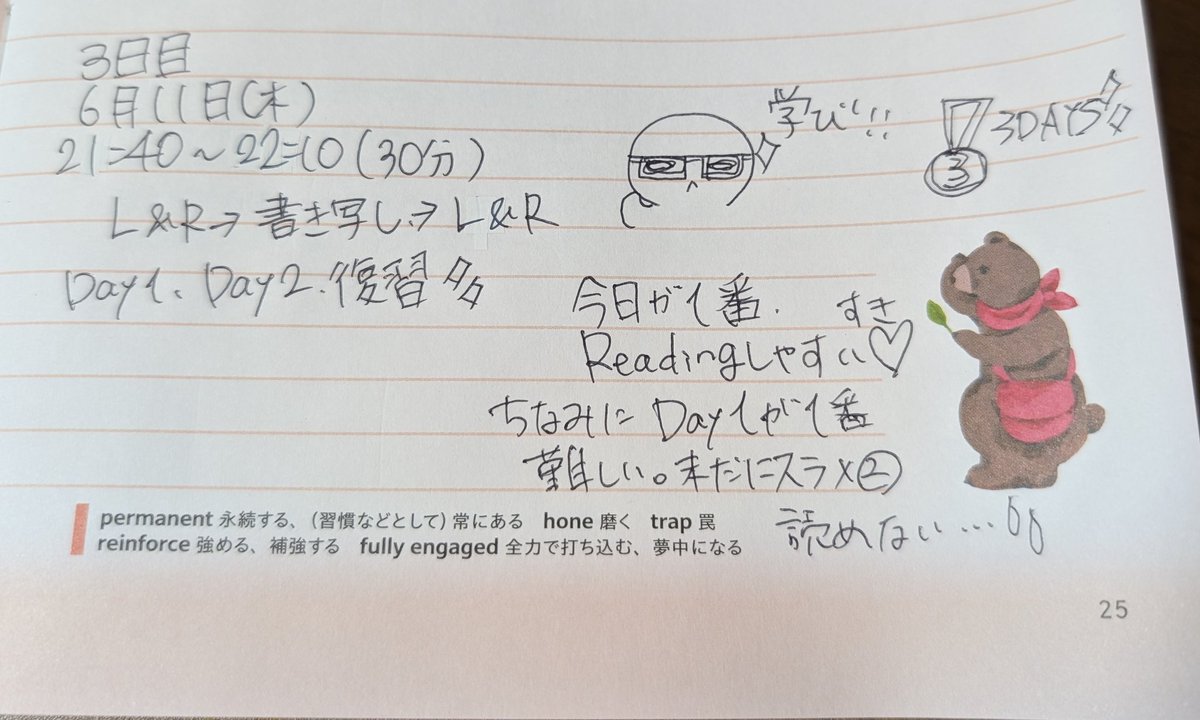 3日目
6月11日(木)
21:40~22:10(30分)
L&R→書き写し→L&R
Day1、Day2、復習多々
学び!!
3DAYS
3
今日が1番、
Readingしやすい すき♡
ちなみに Day1が1番
難しい。未だにスラ×②
読めない…
permanent 永続する、(習慣などとして)常にある hone 磨く trap 罠
reinforce 強める、補強する fully engaged 全力で打ち込む、夢中になる
25